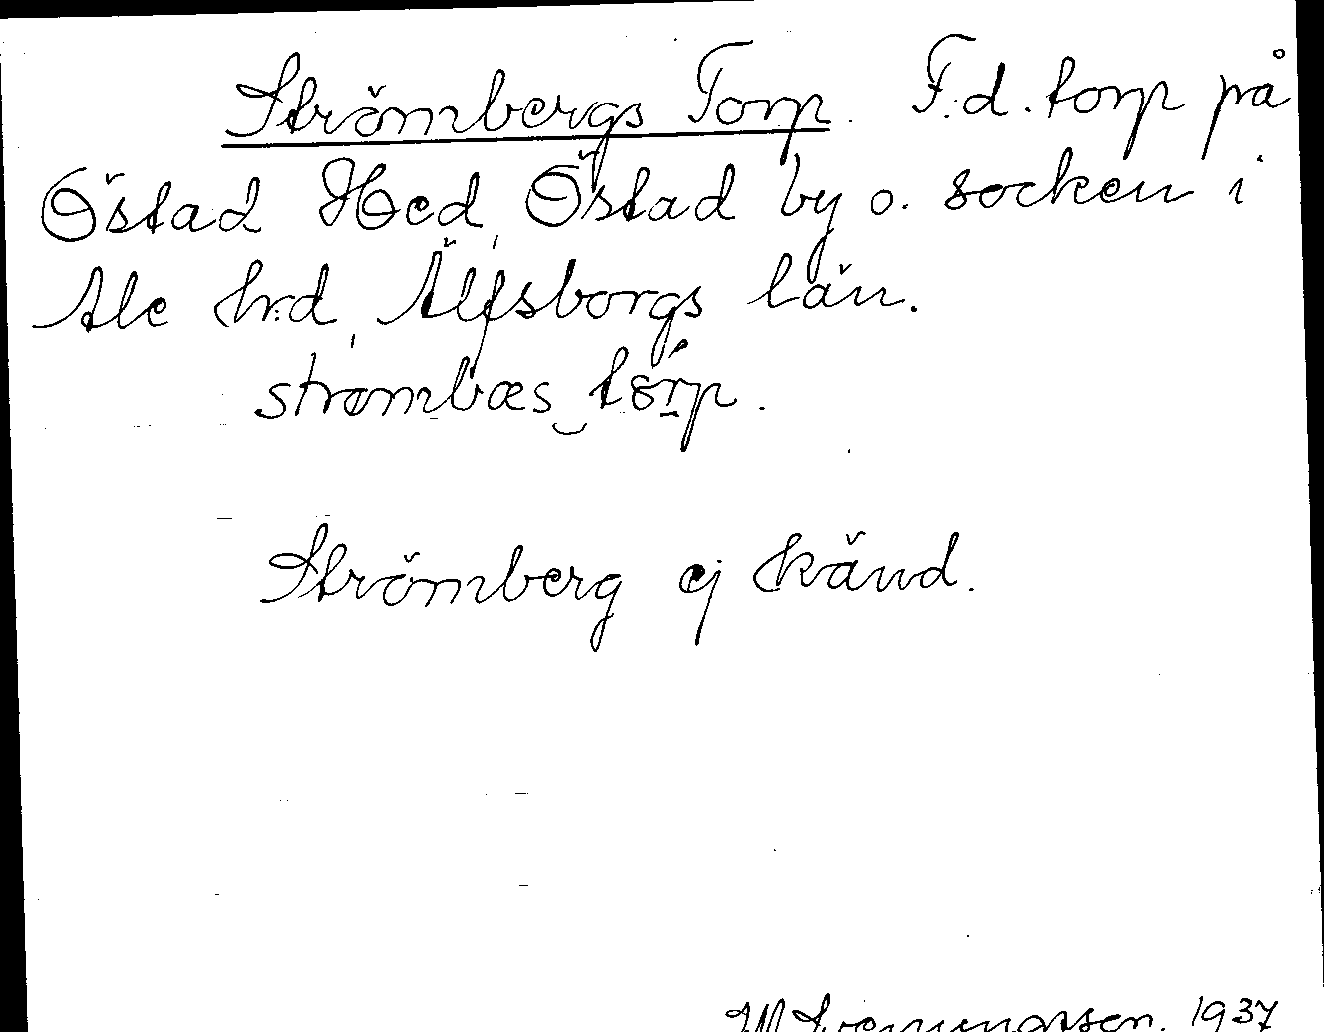 Strömbergs Torp. F.d. torp på
Östad Hed, Östad by o. socken i
Ale hrd, Älfsborgs län.
Strömberg ej känd.
1937